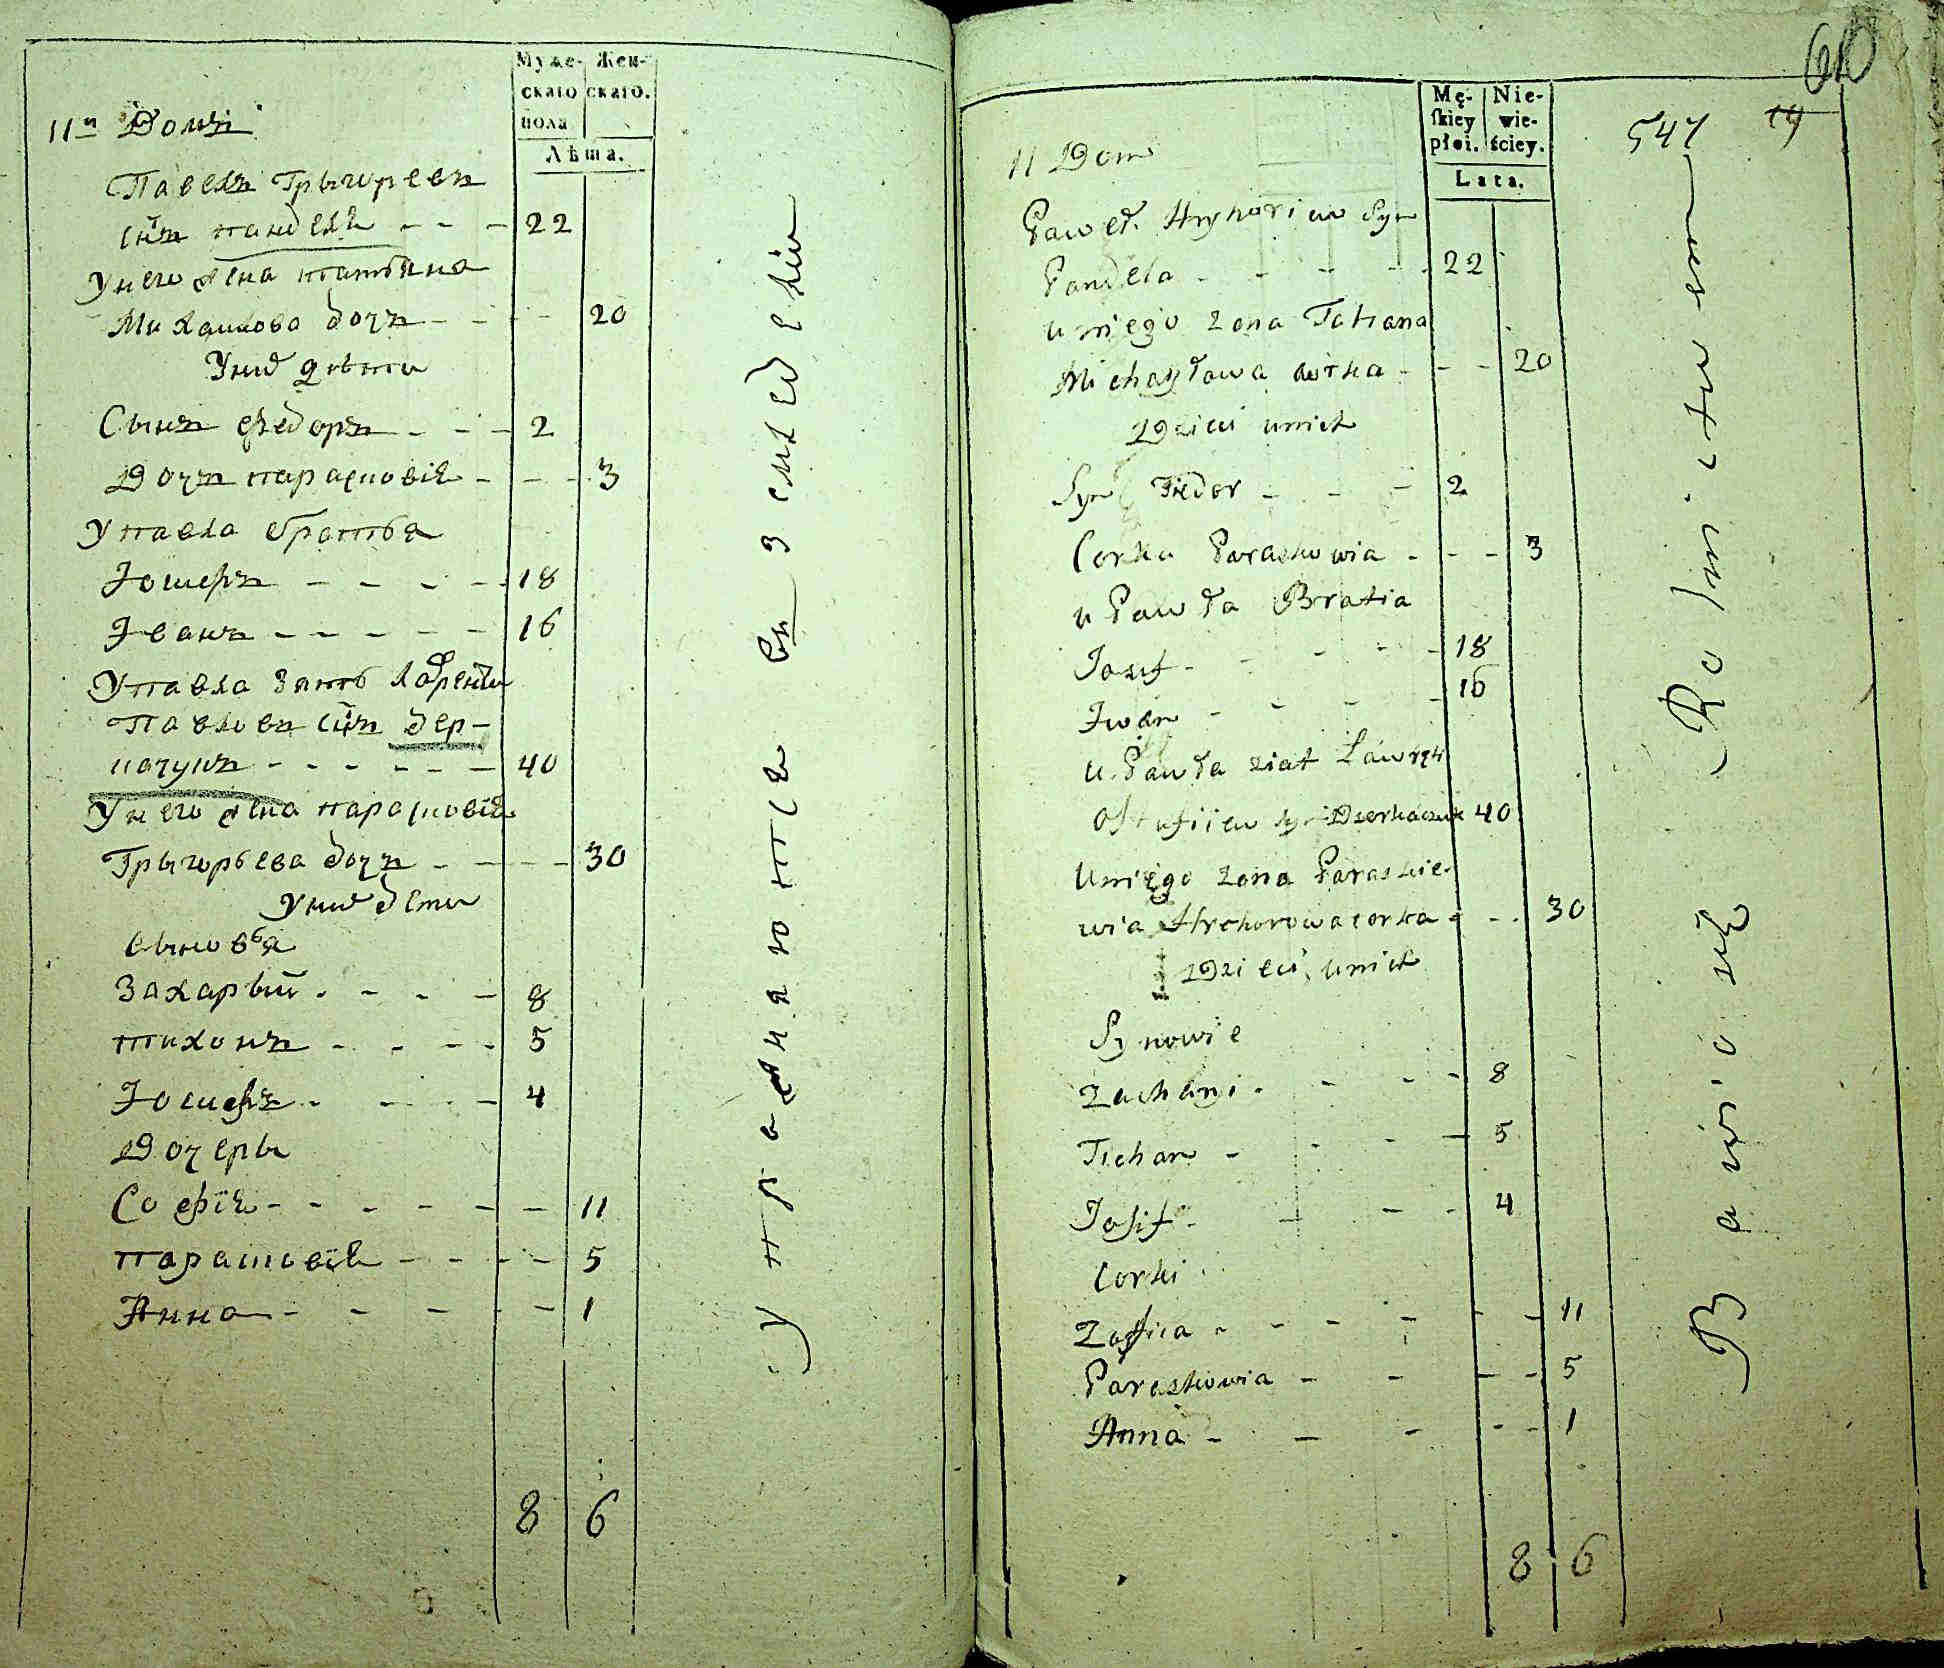 Муже-
скаго
пола
Жен-
скаго.
Лѣта.
11й Домъ
Павелъ Грыгоревъ
сн̃ъ панделѣ - - - 22
У него жена татьяна
Михаилова дочъ - - - 20
У них дѣти
Сынъ ѳедоръ - - - 2
Дочъ парасковіѧ - - - 3
У павла братья
Іосифъ - - - - 18
Іванъ - - - - - 16
У павла зять лаврентій
Павловъ сн̃ъ дер-
качукъ - - - - - - 40
У него жена парасковіѧ
Грыгорьева дочъ - - - - 30
У них дети
сыновья
Захарый - - - - 8
тихонъ - - - - 5
Іосифъ - - - 4
Дочеры
Софіѧ - - - - - - 11
парасковіѧ - - - - - 5
Анна - - - - - 1
8 6
Упражняются въ земледеліи
60
547 14
Mę-
skiey
płci.
Nie-
wie-
ściey.
Lata.
11 Dom
Paweł Hryhoriew Syn
Pandela - - - - - 22
u niego zona Tatiana
Michayłowa corka - - - 20
Dzieci unich
Syn Fiedor - - - 2
Corka Paraskowia - - - 3
u Pawła Bratia
Iozif - - - - - 18
Iwan - - - - - 16
u Pawła ziat Ławręti
syn Derkaczuk 40
Uniego zona Paraskie-
wia Hrehorowa corka - - - 30
Dzieci unich
Synowie
Zachari - - - - 8
Tichan - - - - 5
Iosif - - - - 4
Corki
Zofiia - - - - - - 11
Paraskowia - - - - 5
Anna - - - - - 1
8 6
Bawio się Rolnictwem